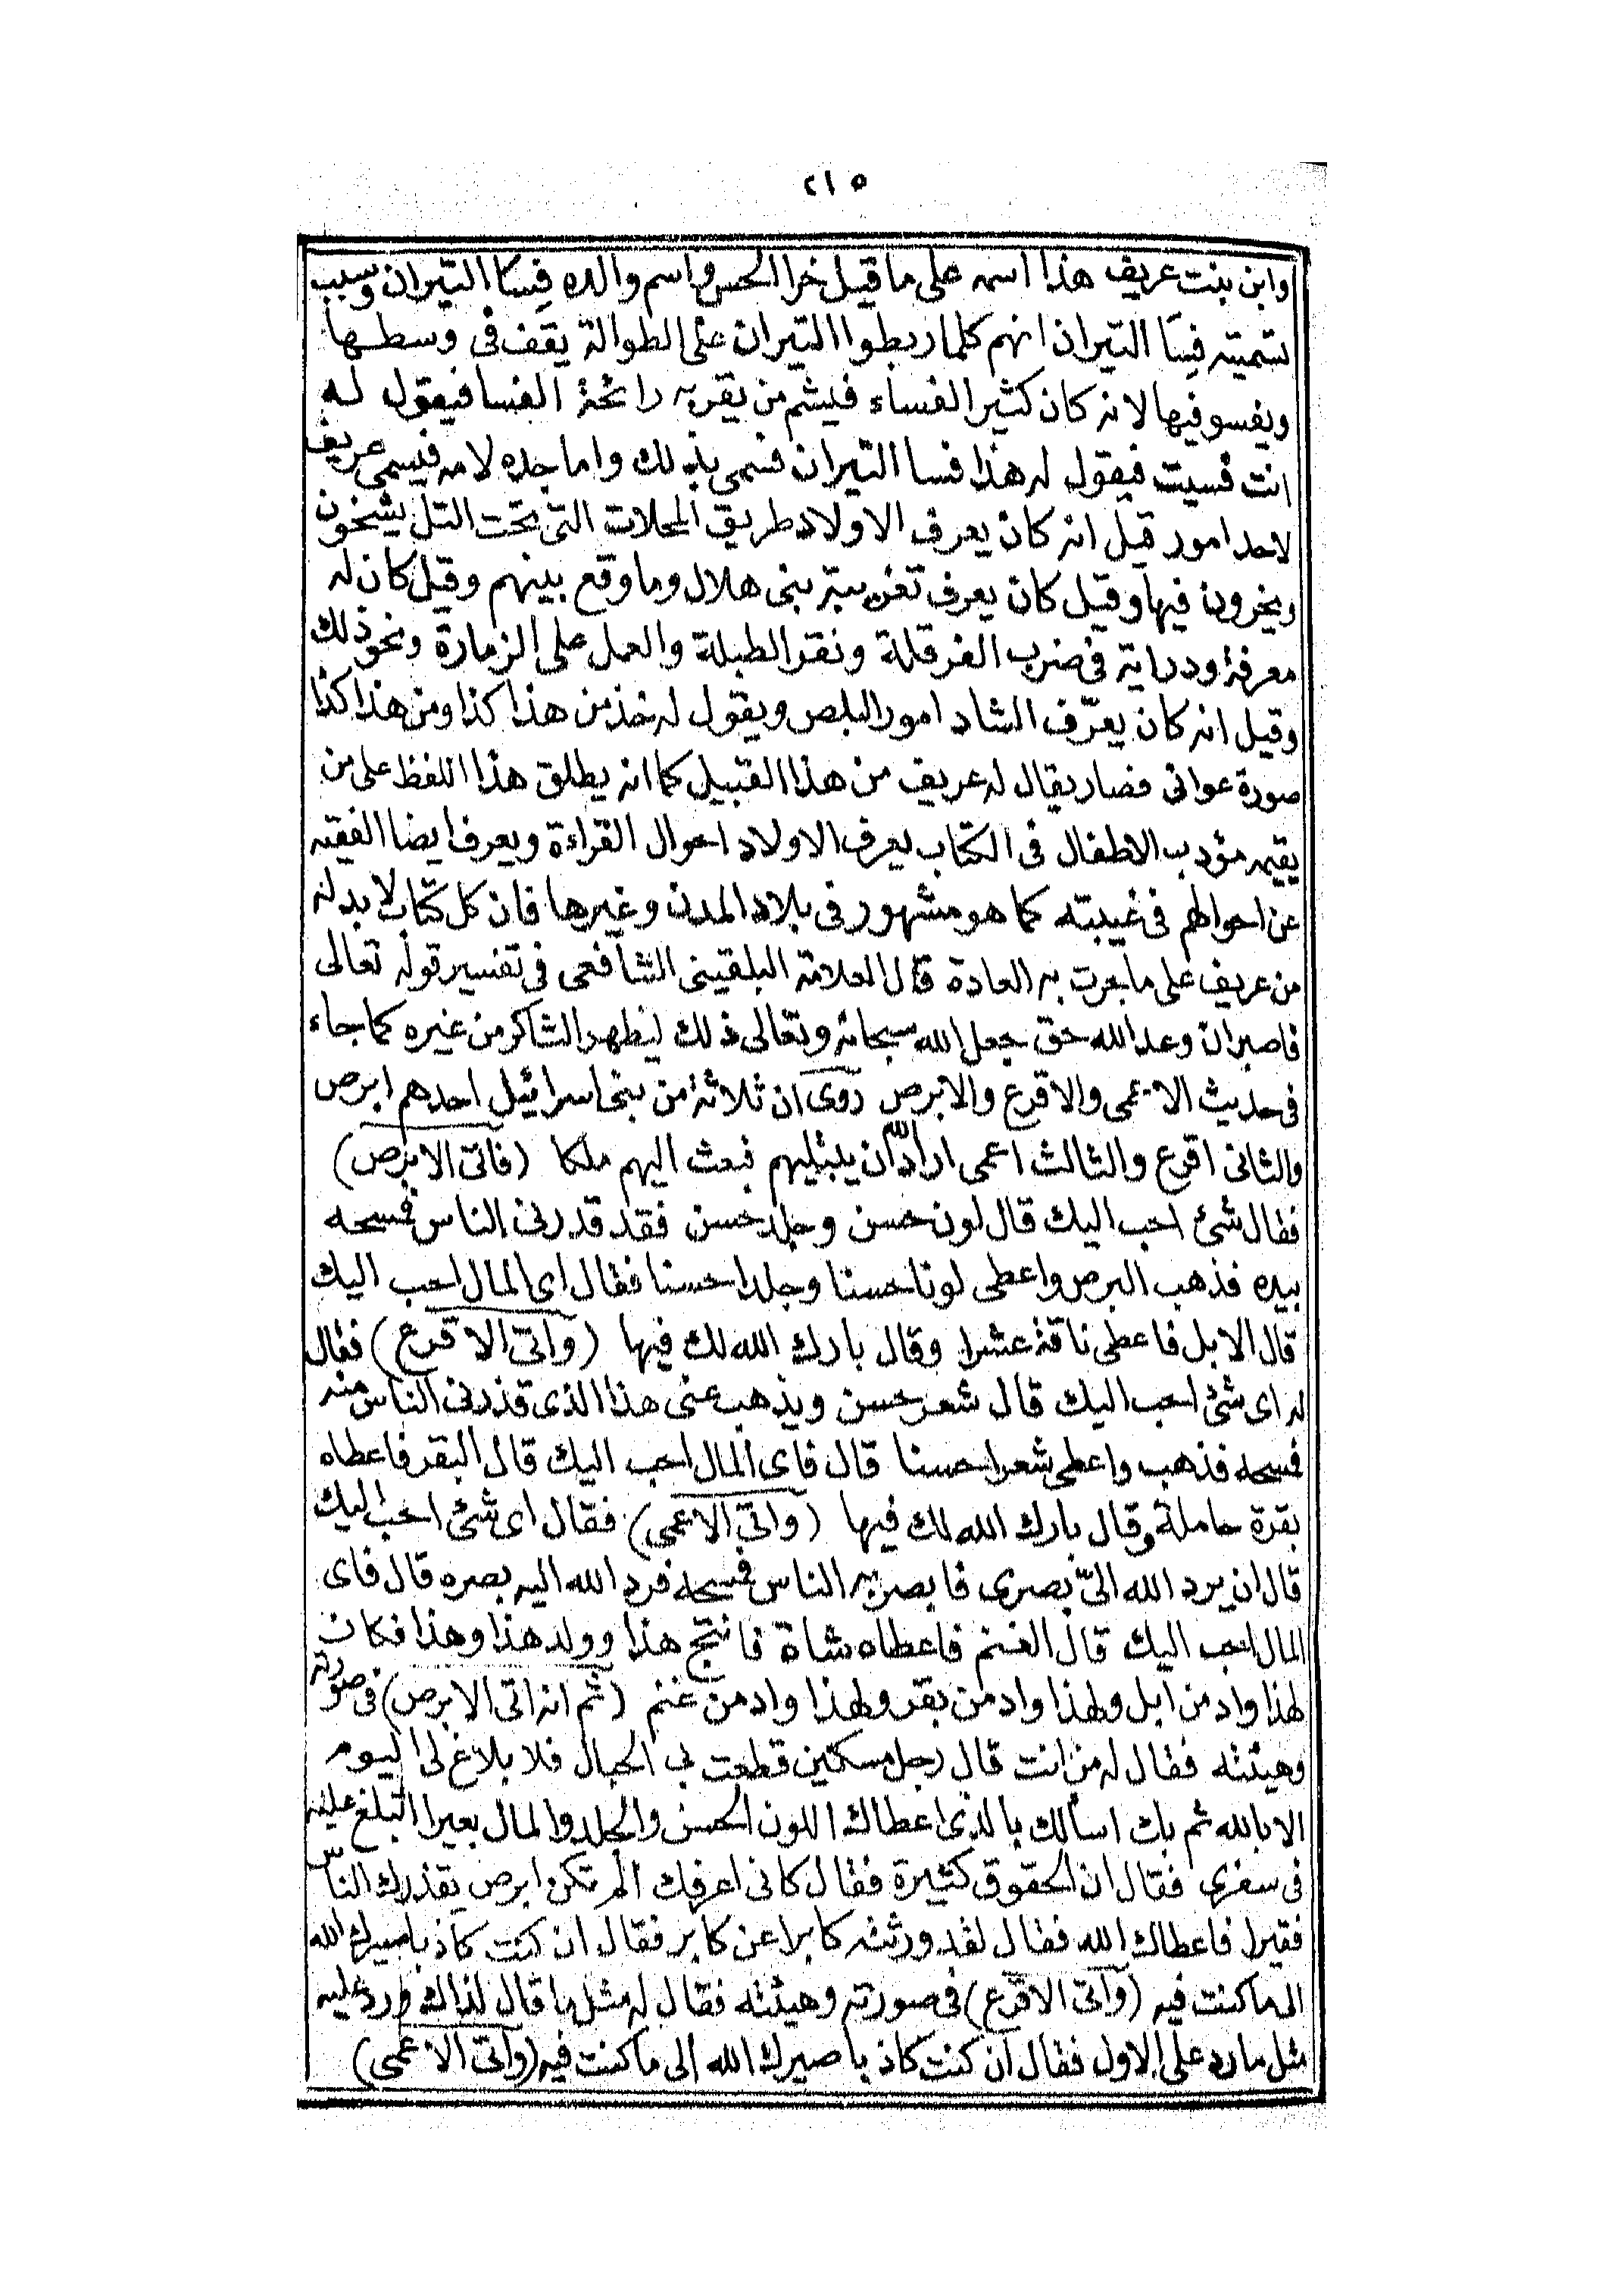 ٢١٥
وابن بنت عريف هذا اسمه على ما قيل خرا الحس واسم والده فسا التيران وسبب
تسميته فسا التيران انهم كلما ربطوا التيران على الطوالة يقف فى وسطها
ويفسو فيها لانه كان كثير الفساء فيشم من يقربه رائحة الفسا فيقول له
انت فسيت فيقول له هذا فسا التيران فسمى بذلك واما جده لامه فيسمى عريف
لاحد امور قيل انه كان يعرف الاولاد طريق المحلات التى تحت التل يشخون
ويخرون فيها وقيل كان يعرف تغريبة بنى هلال وما وقع بينهم وقيل كان له
معرفة ودراية فى ضرب الفرقلة ونقر الطبلة والعمل على الزمارة ونحو ذلك
وقيل انه كان يعرّف الشاد امور البلص ويقول له خذ من هذا كذا ومن هذا كذا
صورة عوانى فصار يقال له عريف من هذا القبيل كما انه يطلق هذا اللفظ على من
يقيمه مؤدب الاطفال فى الكتاب يعرف الاولاد احوال القراءة ويعرف ايضا الفقيه
عن احوالهم فى غيبته كما هو مشهور فى بلاد المدن وغيرها فان كل كتاب لا بد له
من عريف على ما جرت به العادة قال العلامة البلقينى الشافعى فى تفسير قوله تعالى
فاصبر ان وعد الله حق جعل الله سبحانه وتعالى ذلك ليظهر الشاكر من غيره كما جاء
فى حديث الاعمى والاقرع والابرص روى ان ثلاثة من بنى اسرائيل احدهم ابرص
والثانى اقرع والثالث اعمى اراد الله ان يبتليهم فبعث اليهم ملكا (فاتى الابرص)
فقال شئ احب اليك قال لون حسن وجلد حسن فقد قدرنى الناس فمسحه
بيده فذهب البرص واعطى لونا حسنا وجلدا حسنا فقال اى المال احب اليك
قال الابل فاعطى ناقة عشرا وقال بارك الله لك فيها (واتى الاقرع) فقال
له اى شئ احب اليك قال شعر حسن ويذهب عنى هذا الذى قذرنى الناس منه
فمسحه فذهب واعطى شعرا حسنا قال فاى المال احب اليك قال البقر فاعطاه
بقرة حاملة وقال بارك الله لك فيها (واتى الاعمى) فقال اى شئ احب اليك
قال ان يرد الله الىّ بصرى فابصر به الناس فمسحه فرد الله اليه بصره قال فاى
المال احب اليك قال الغنم فاعطاه شاة فانتج هذا وولد هذا وهذا فكان
لهذا واد من ابل ولهذا واد من بقر ولهذا واد من غنم (ثم انه اتى الابرص) فى صورته
وهيئته فقال له من انت قال رجل مسكين قطعت بى الحبال فلا بلاغ لى اليوم
الا بالله ثم بك اسألك بالذى اعطاك اللون الحسن والجلد والمال بعيرا اتبلغ عليه
فى سفرى فقال ان الحقوق كثيرة فقال كانى اعرفك الم تكن ابرص يقذرك الناس
فقيرا فاعطاك الله فقال لقد ورثته كابرا عن كابر فقال ان كنت كاذبا صيرك الله
الى ما كنت فيه (واتى الاقرع) فى صورته وهيئته فقال له مثل ما قال لذاك ورد عليه
مثل ما رد على الاول فقال ان كنت كاذبا صيرك الله الى ما كنت فيه (واتى الاعمى)